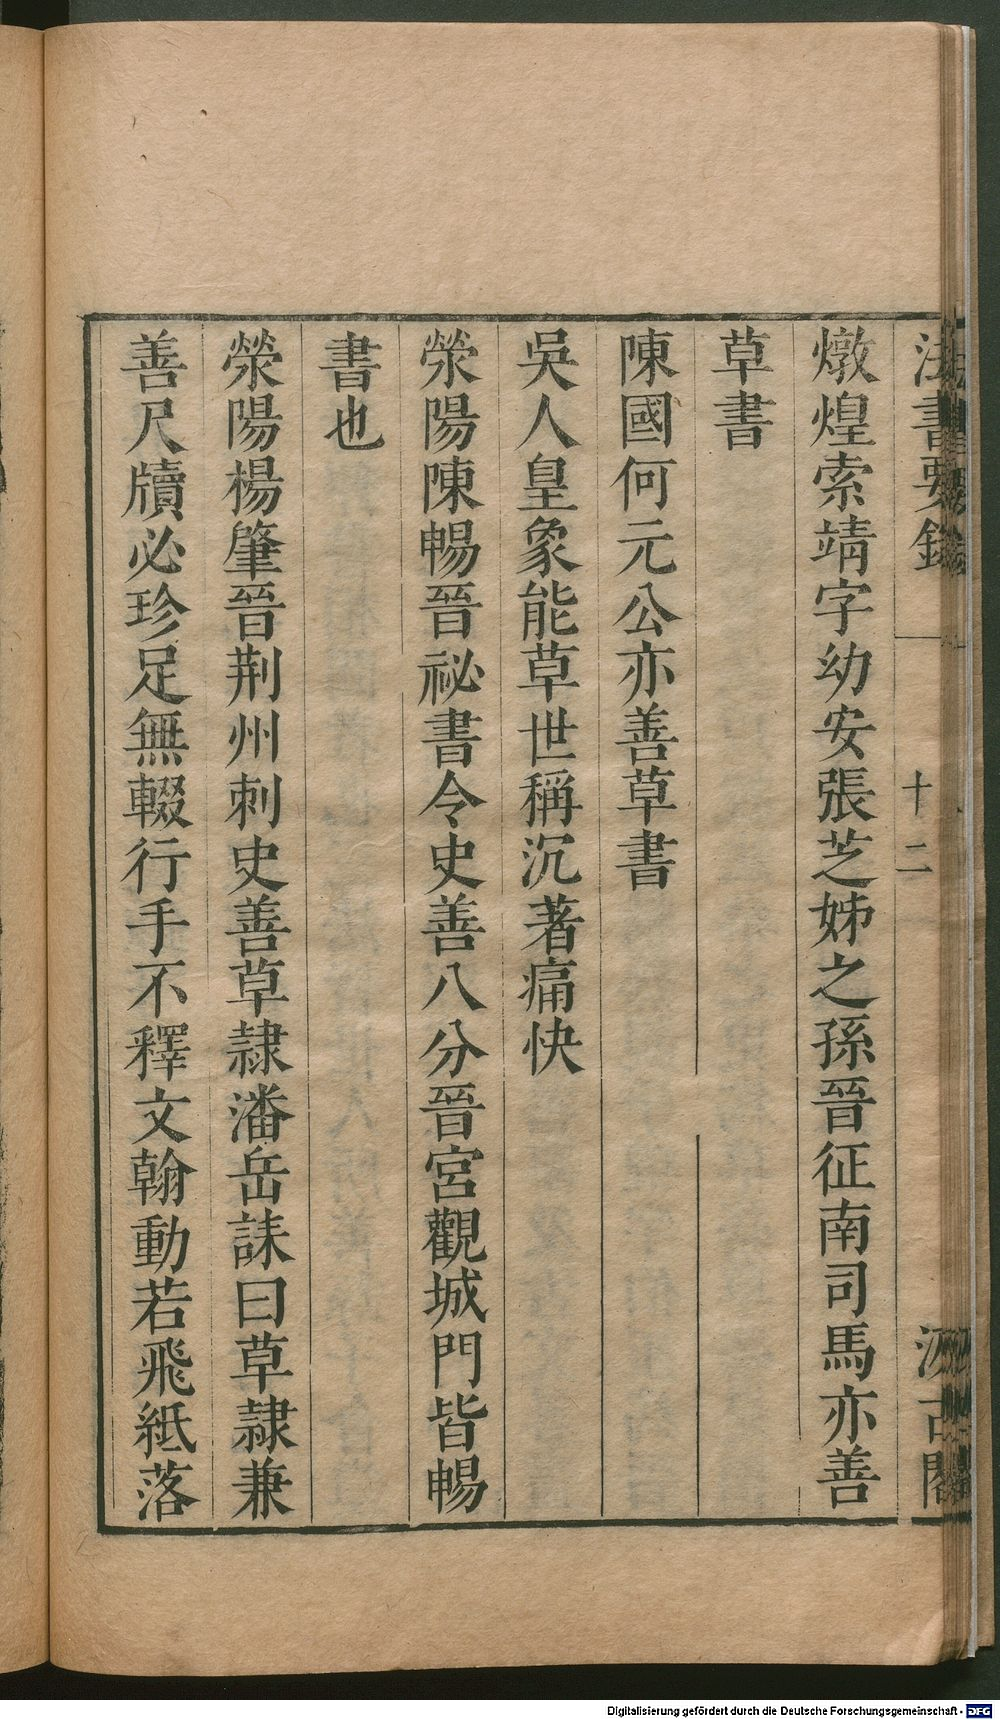 法書要錄 十二 汲古閣
燉煌索靖字幼安張芝姊之孫晉征南司馬亦善
草書
陳國何元公亦善草書
吳人皇象能草世稱沉著痛快
滎陽陳暢晉祕書令史善八分晉宮觀城門皆暢
書也
滎陽楊肇晉荆州刺史善草隷潘岳誄曰草隷兼
善尺牘必珍足無輟行手不釋文翰動若飛紙落
Digitalisierung gefördert durch die Deutsche Forschungsgemeinschaft - DFG